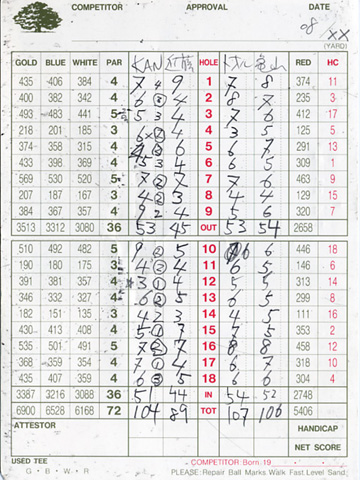 COMPETITOR APPROVAL DATE
08/XX
(YARD)
GOLD BLUE WHITE PAR KAN HOLE 亀山 RED HC
435 406 384 4 7 4 9 1 7 8 374 11
400 382 342 4 6 4 2 8 7 235 3
493 483 441 5 5 3 4 3 7 6 412 17
218 201 185 3 6 4 4 3 5 125 5
374 358 315 4 6 5 6 7 291 13
433 398 369 4 3 4 6 6 5 309 1
569 530 520 5 7 2 7 7 7 6 463 9
207 187 167 3 4 2 3 8 4 4 129 15
384 367 357 4 9 2 4 9 5 6 320 7
3513 3312 3080 36 53 45 OUT 53 54 2658
510 492 482 5 9 2 5 10 6 6 446 18
190 180 175 3 4 2 4 11 6 5 146 6
391 381 357 4 3 1 4 12 5 5 313 14
346 332 327 4 6 2 5 13 6 5 299 8
182 151 135 3 4 2 3 14 4 5 111 16
430 413 408 4 5 1 7 15 7 5 353 2
535 501 491 5 7 7 16 8 8 458 12
368 359 354 4 7 1 4 17 6 7 318 10
435 407 359 4 6 3 5 18 6 6 304 4
3387 3216 3088 36 51 44 IN 54 52 2748
6900 6528 6168 72 104 89 TOT 107 106 5406
ATTESTOR HANDICAP
NET SCORE
USED TEE COMPETITOR Born 19
G · B · W · R PLEASE: Repair Ball Marks Walk Fast, Level Sand